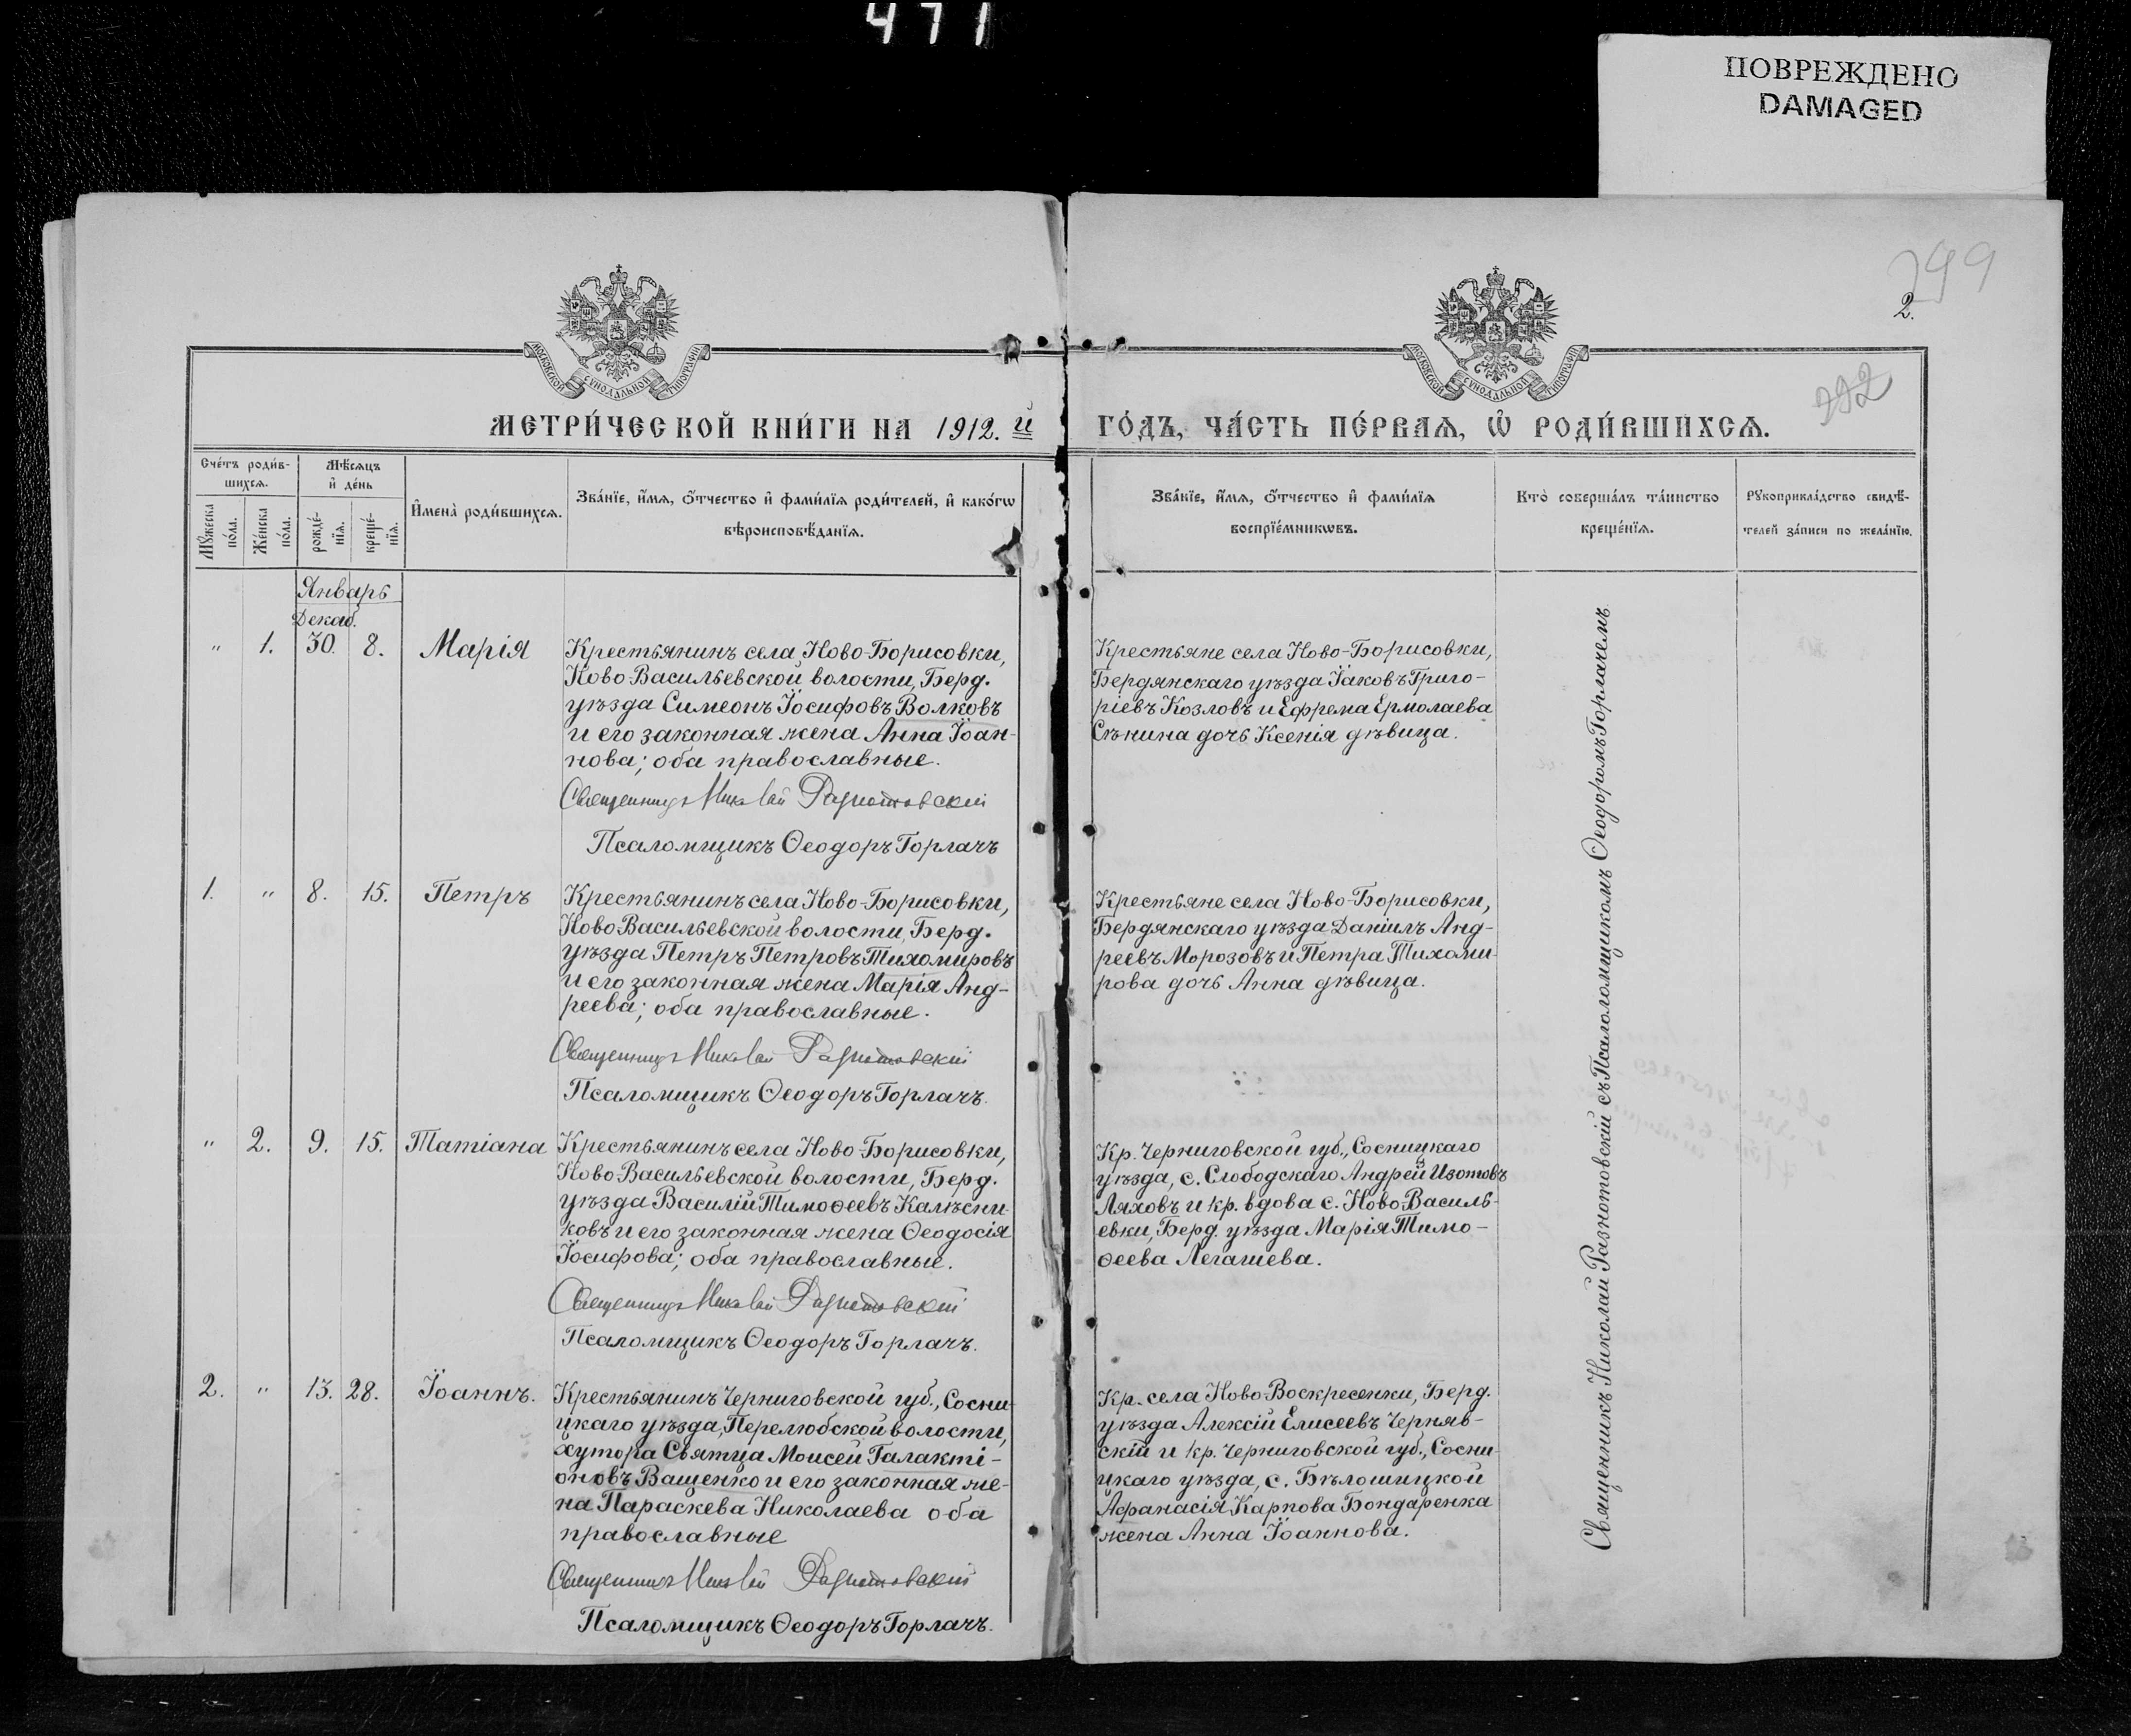 471
ПОВРЕЖДЕНО
DAMAGED
799
2.
392
МОСКОВСКОЙ СУНОДАЛЬНОЙ ТИПОГРАФИИ
МОСКОВСКОЙ СУНОДАЛЬНОЙ ТИПОГРАФИИ
МЕТРИ́ЧЕСКОЙ КНИ́ГИ НА 1912.й ГО́ДЪ, ЧА́СТЬ ПЕ́РВАѦ, Ѡ҆ РОДИ́ВШИХСѦ.
Сче́тъ роди́в-
шихсѧ.
Мꙋ́жеска
по́ла.
Же́нска
по́ла.
Мѣ́сѧцъ
и҆ де́нь
рожде́-
нїѧ.
креще́-
нїѧ.
И҆мена̀ роди́вшихсѧ.
Зва́нїе, и҆́мѧ, ѻ҆́тчество и҆ фами́лїѧ роди́телей, и҆ како́гѡ
вѣроисповѣ́данїѧ.
Зва́нїе, и҆́мѧ, ѻ҆́тчество и҆ фами́лїѧ
воспрїе́мникѡвъ.
Кто̀ соверша́лъ та́инство
креще́нїѧ.
Рꙋкоприкла́дство свидѣ́-
телей за́писи по жела́нїю.
Январь
Декаб.
" 1. 30. 8. Марія
Крестьянинъ села Ново-Борисовки,
Ново-Васильевской волости, Берд.
уѣзда Симеонъ Іосифовъ Волковъ
и его законная жена Анна Іоан-
нова; оба православные.
Священникъ Николай Разнотовскій
Псаломщикъ Ѳеодоръ Горлачъ
Крестьяне села Ново-Борисовки,
Бердянскаго уѣзда Іаковъ Григо-
ріевъ Козловъ и Ефрема Ермолаева
Сѣнина дочь Ксенія дѣвица.
1. " 8. 15. Петръ
Крестьянинъ села Ново-Борисовки,
Ново Васильевской волости, Берд.
уѣзда Петръ Петровъ Тихомировъ
и его законная жена Марія Анд-
реева; оба православные.
Священникъ Николай Разнотовскій
Псаломщикъ Ѳеодоръ Горлачъ.
Крестьяне села Ново-Борисовки,
Бердянскаго уѣзда Даніилъ Анд-
реевъ Морозовъ и Петра Тихоми-
рова дочь Анна дѣвица.
" 2. 9. 15. Татіана
Крестьянинъ села Ново-Борисовки,
Ново-Васильевской волости, Берд.
уѣзда Василій Тимоѳеевъ Калѣсни-
ковъ и его законная жена Ѳеодосія
Іосифова; оба православные.
Священникъ Николай Разнотовскій
Псаломщикъ Ѳеодоръ Горлачъ.
Кр. Черниговской губ., Сосницкаго
уѣзда, с. Слободскаго Андрей Изотовъ
Ляховъ и кр. вдова с. Ново-Василь-
евки, Берд. уѣзда Марія Тимо-
ѳеева Легашева.
2. " 13. 28. Іоаннъ.
Крестьянинъ Черниговской губ., Сосни-
цкаго уѣзда, Перелюбской волости,
хутора Святца Моисей Галакті-
оновъ Ващенко и его законная же-
на Параскева Николаева оба
православные
Священникъ Николай Разнотовскій
Псаломщикъ Ѳеодоръ Горлачъ.
Кр. села Ново-Воскресенки, Берд.
уѣзда Алексій Елисеевъ Черняв-
скій и кр. Черниговской губ., Сосни-
цкаго уѣзда, с. Бѣлошицкой
Аѳанасія Карпова Бондаренка
жена Анна Іоаннова.
Священникъ Николай Разнотовскій съ Псаломщикомъ Ѳеодоромъ Горлачемъ